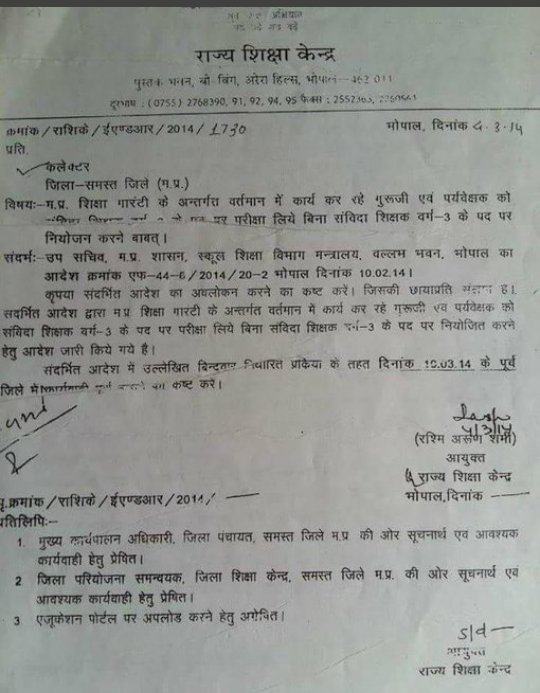 राज्य शिक्षा केन्द्र
पुस्तक भवन, बी-बिंग, अरेरा हिल्स, भोपाल-462 011
दूरभाष : (0755) 2768390, 91, 92, 94, 95 फैक्स : 2552363,
क्रमांक / राशिके / ईएण्डआर / 2014 / 1730 भोपाल, दिनांक 4.3.14
प्रति,
कलेक्टर
जिला-समस्त जिले (म.प्र.)
विषयः-म.प्र. शिक्षा गारंटी के अन्तर्गत वर्तमान में कार्य कर रहे गुरूजी एवं पर्यवेक्षक को
पर परीक्षा लिये बिना संविदा शिक्षक वर्ग-3 के पद पर
नियोजन करने बाबत्।
संदर्भः-उप सचिव, म.प्र. शासन, स्कूल शिक्षा विभाग मन्त्रालय, वल्लभ भवन, भोपाल का
आदेश क्रमांक एफ-44-6 / 2014 / 20-2 भोपाल दिनांक 10.02.14।
कृपया संदर्भित आदेश का अवलोकन करने का कष्ट करें। जिसकी छायाप्रति संलग्न है।
सदर्भित आदेश द्वारा म.प्र शिक्षा गारटी के अन्तर्गत वर्तमान में कार्य कर रहे गुरूजी एवं पर्यवेक्षक को
संविदा शिक्षक वर्ग-3 के पद पर परीक्षा लिये बिना संविदा शिक्षक वर्ग-3 के पद पर नियोजित करने
हेतु आदेश जारी किये गये है।
संदर्भित आदेश में उल्लेखित निर्धारित प्रकिया के तहत दिनांक 10.03.14 के पूर्व
जिले में का कष्ट करें।
4/3/14
(रश्मि अरूण शमी)
आयुक्त
राज्य शिक्षा केन्द्र
पृ.क्रमांक / राशिके / ईएण्डआर / 2014 / — भोपाल,दिनांक —
प्रतिलिपिः-
1. मुख्य कार्यपालन अधिकारी, जिला पंचायत, समस्त जिले म.प्र की ओर सूचनार्थ एवं आवश्यक
कार्यवाही हेतु प्रेषित।
2 जिला परियोजना समन्वयक, जिला शिक्षा केन्द्र, समस्त जिले म.प्र. की ओर सूचनार्थ एवं
आवश्यक कार्यवाही हेतु प्रेषित।
3 एजूकेशन पोर्टल पर अपलोड करने हेतु अग्रेषित।
s/d —
आयुक्त
राज्य शिक्षा केन्द्र